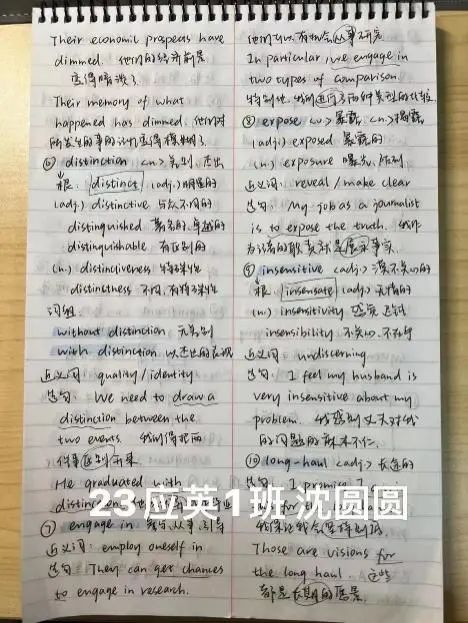 Their economic prospects have
dimmed. 他们的经济前景
变得暗淡了.
Their memory of what
happened has dimmed. 他们对
所发生的事的记忆变得模糊了.
⑥ distinction <n.> 差别, 杰出
根. distinct (adj.) 明显的
(adj.) distinctive 与众不同的
distinguished 著名的, 卓越的
distinguishable 有区别的
(n.) distinctiveness 特殊性
distinctness 不同, 有特殊性
词组:
without distinction 无差别
with distinction 以杰出的表现
近义词: quality/identity
造句: We need to draw a
distinction between the
two events. 我们得把两
件事区别开来.
He graduated with
distinction
⑦ engage in 从事
近义词: employ oneself in
造句: They can get chances
to engage in research.
他们可以有机会从事研究
In particular, we engage in
two types of comparison
特别地, 我们进行了两种类型的比较.
⑧ expose <v.> 暴露 <n.> 揭露
(adj.) exposed 暴露的
(n.) exposure 曝光, 陈列
近义词: reveal / make clear
造句: My job as a journalist
is to expose the truth. 我作
为记者的职责就是展示事实.
⑨ insensitive <adj.> 漠不关心的
根. insensate (adj.) 无情的
(n.) insensitivity
insensibility 不关心
近义词: undiscerning
造句: I feel my husband is
very insensitive about my
problem. 我感到丈夫对我
的问题的麻木不仁.
⑩ long-haul <adj.> 长途的
造句: I promise I
我保证我会坚持到底
Those are visions for
the long haul. 这些
都是长期的愿景.
23应英1班沈圆圆